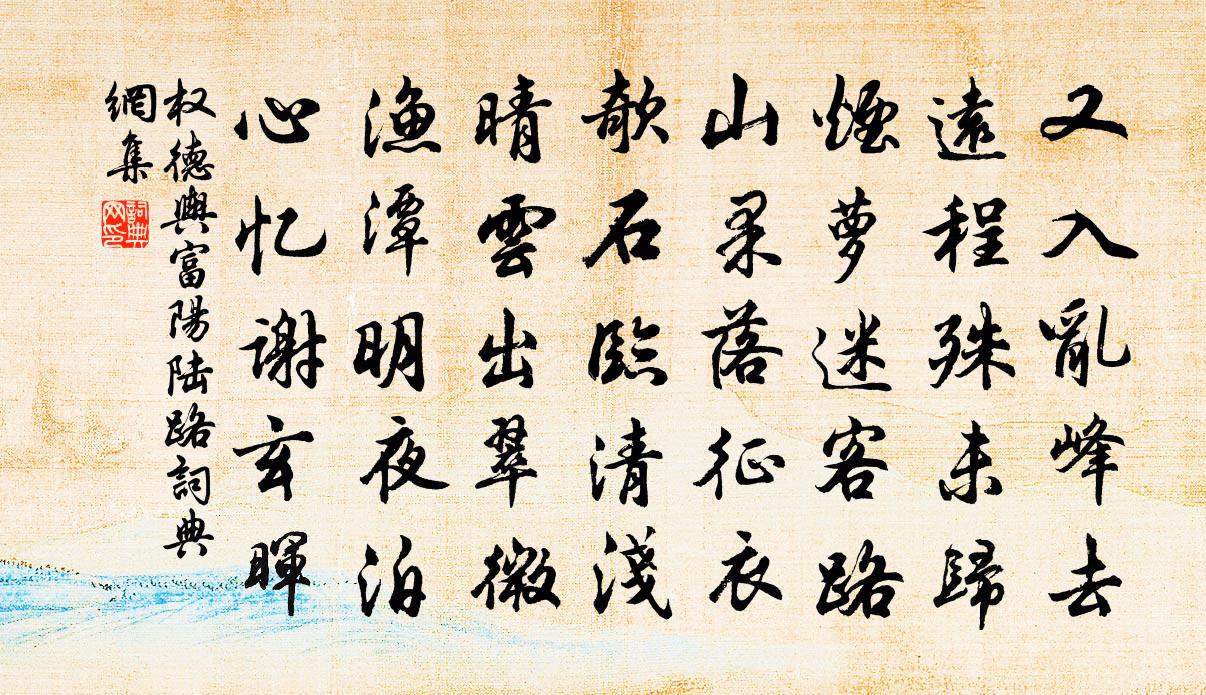 又入亂峰去
遠程殊未歸
煙萝迷客路
山果落征衣
欹石臨清淺
晴雲出翠微
漁潭明夜泊
心忆謝玄暉
权德輿富陽陆路詞典
網集
詞典
网印